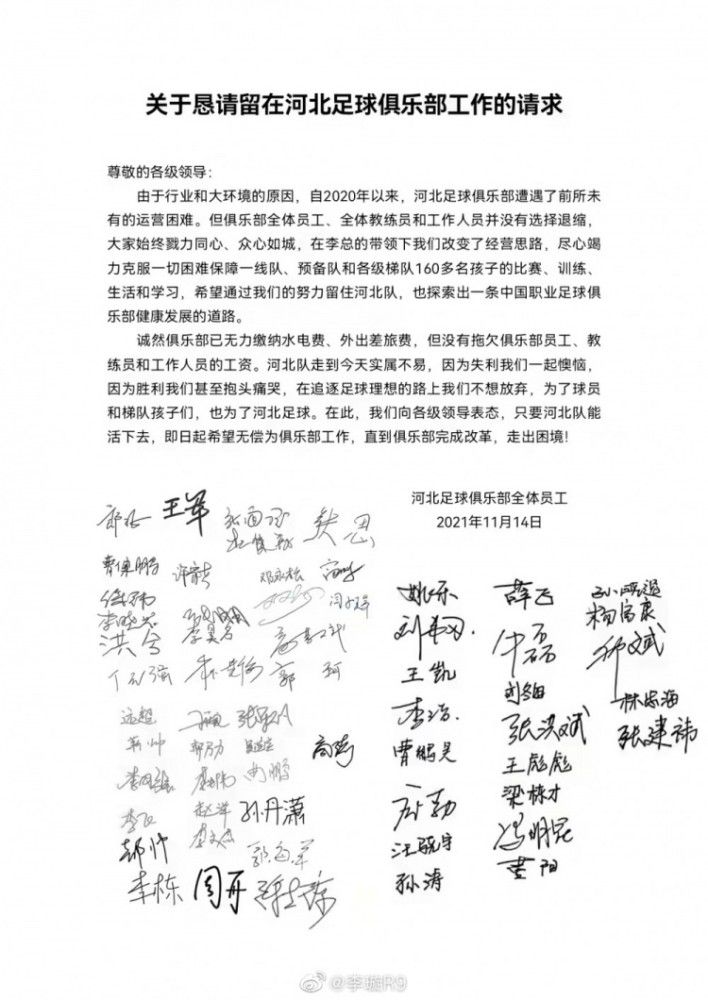 关于恳请留在河北足球俱乐部工作的请求
尊敬的各级领导：
由于行业和大环境的原因，自2020年以来，河北足球俱乐部遭遇了前所未
有的运营困难。但俱乐部全体员工、全体教练员和工作人员并没有选择退缩，
大家始终戮力同心、众心如城，在李总的带领下我们改变了经营思路，尽心竭
力克服一切困难保障一线队、预备队和各级梯队160多名孩子的比赛、训练、
生活和学习，希望通过我们的努力留住河北队，也探索出一条中国职业足球俱
乐部健康发展的道路。
诚然俱乐部已无力缴纳水电费、外出差旅费，但没有拖欠俱乐部员工、教
练员和工作人员的工资。河北队走到今天实属不易，因为失利我们一起懊恼，
因为胜利我们甚至抱头痛哭，在追逐足球理想的路上我们不想放弃，为了球员
和梯队孩子们，也为了河北足球。在此，我们向各级领导表态，只要河北队能
活下去，即日起希望无偿为俱乐部工作，直到俱乐部完成改革，走出困境！
河北足球俱乐部全体员工
2021年11月14日
王军
洪兮
郭珂
孙丹潇
李栋
周开
姚乐
王凯
李浩
曹鹏昊
孙涛
薛飞
张洪斌
王彪彪
梁栋才
冯明昆
杨富康
林志海
张建祎
@李璇R9